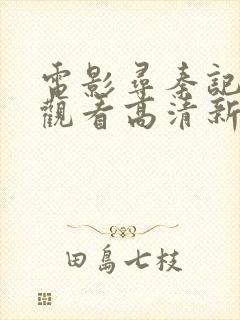 電影尋秦記
觀看高清新
田島七枝